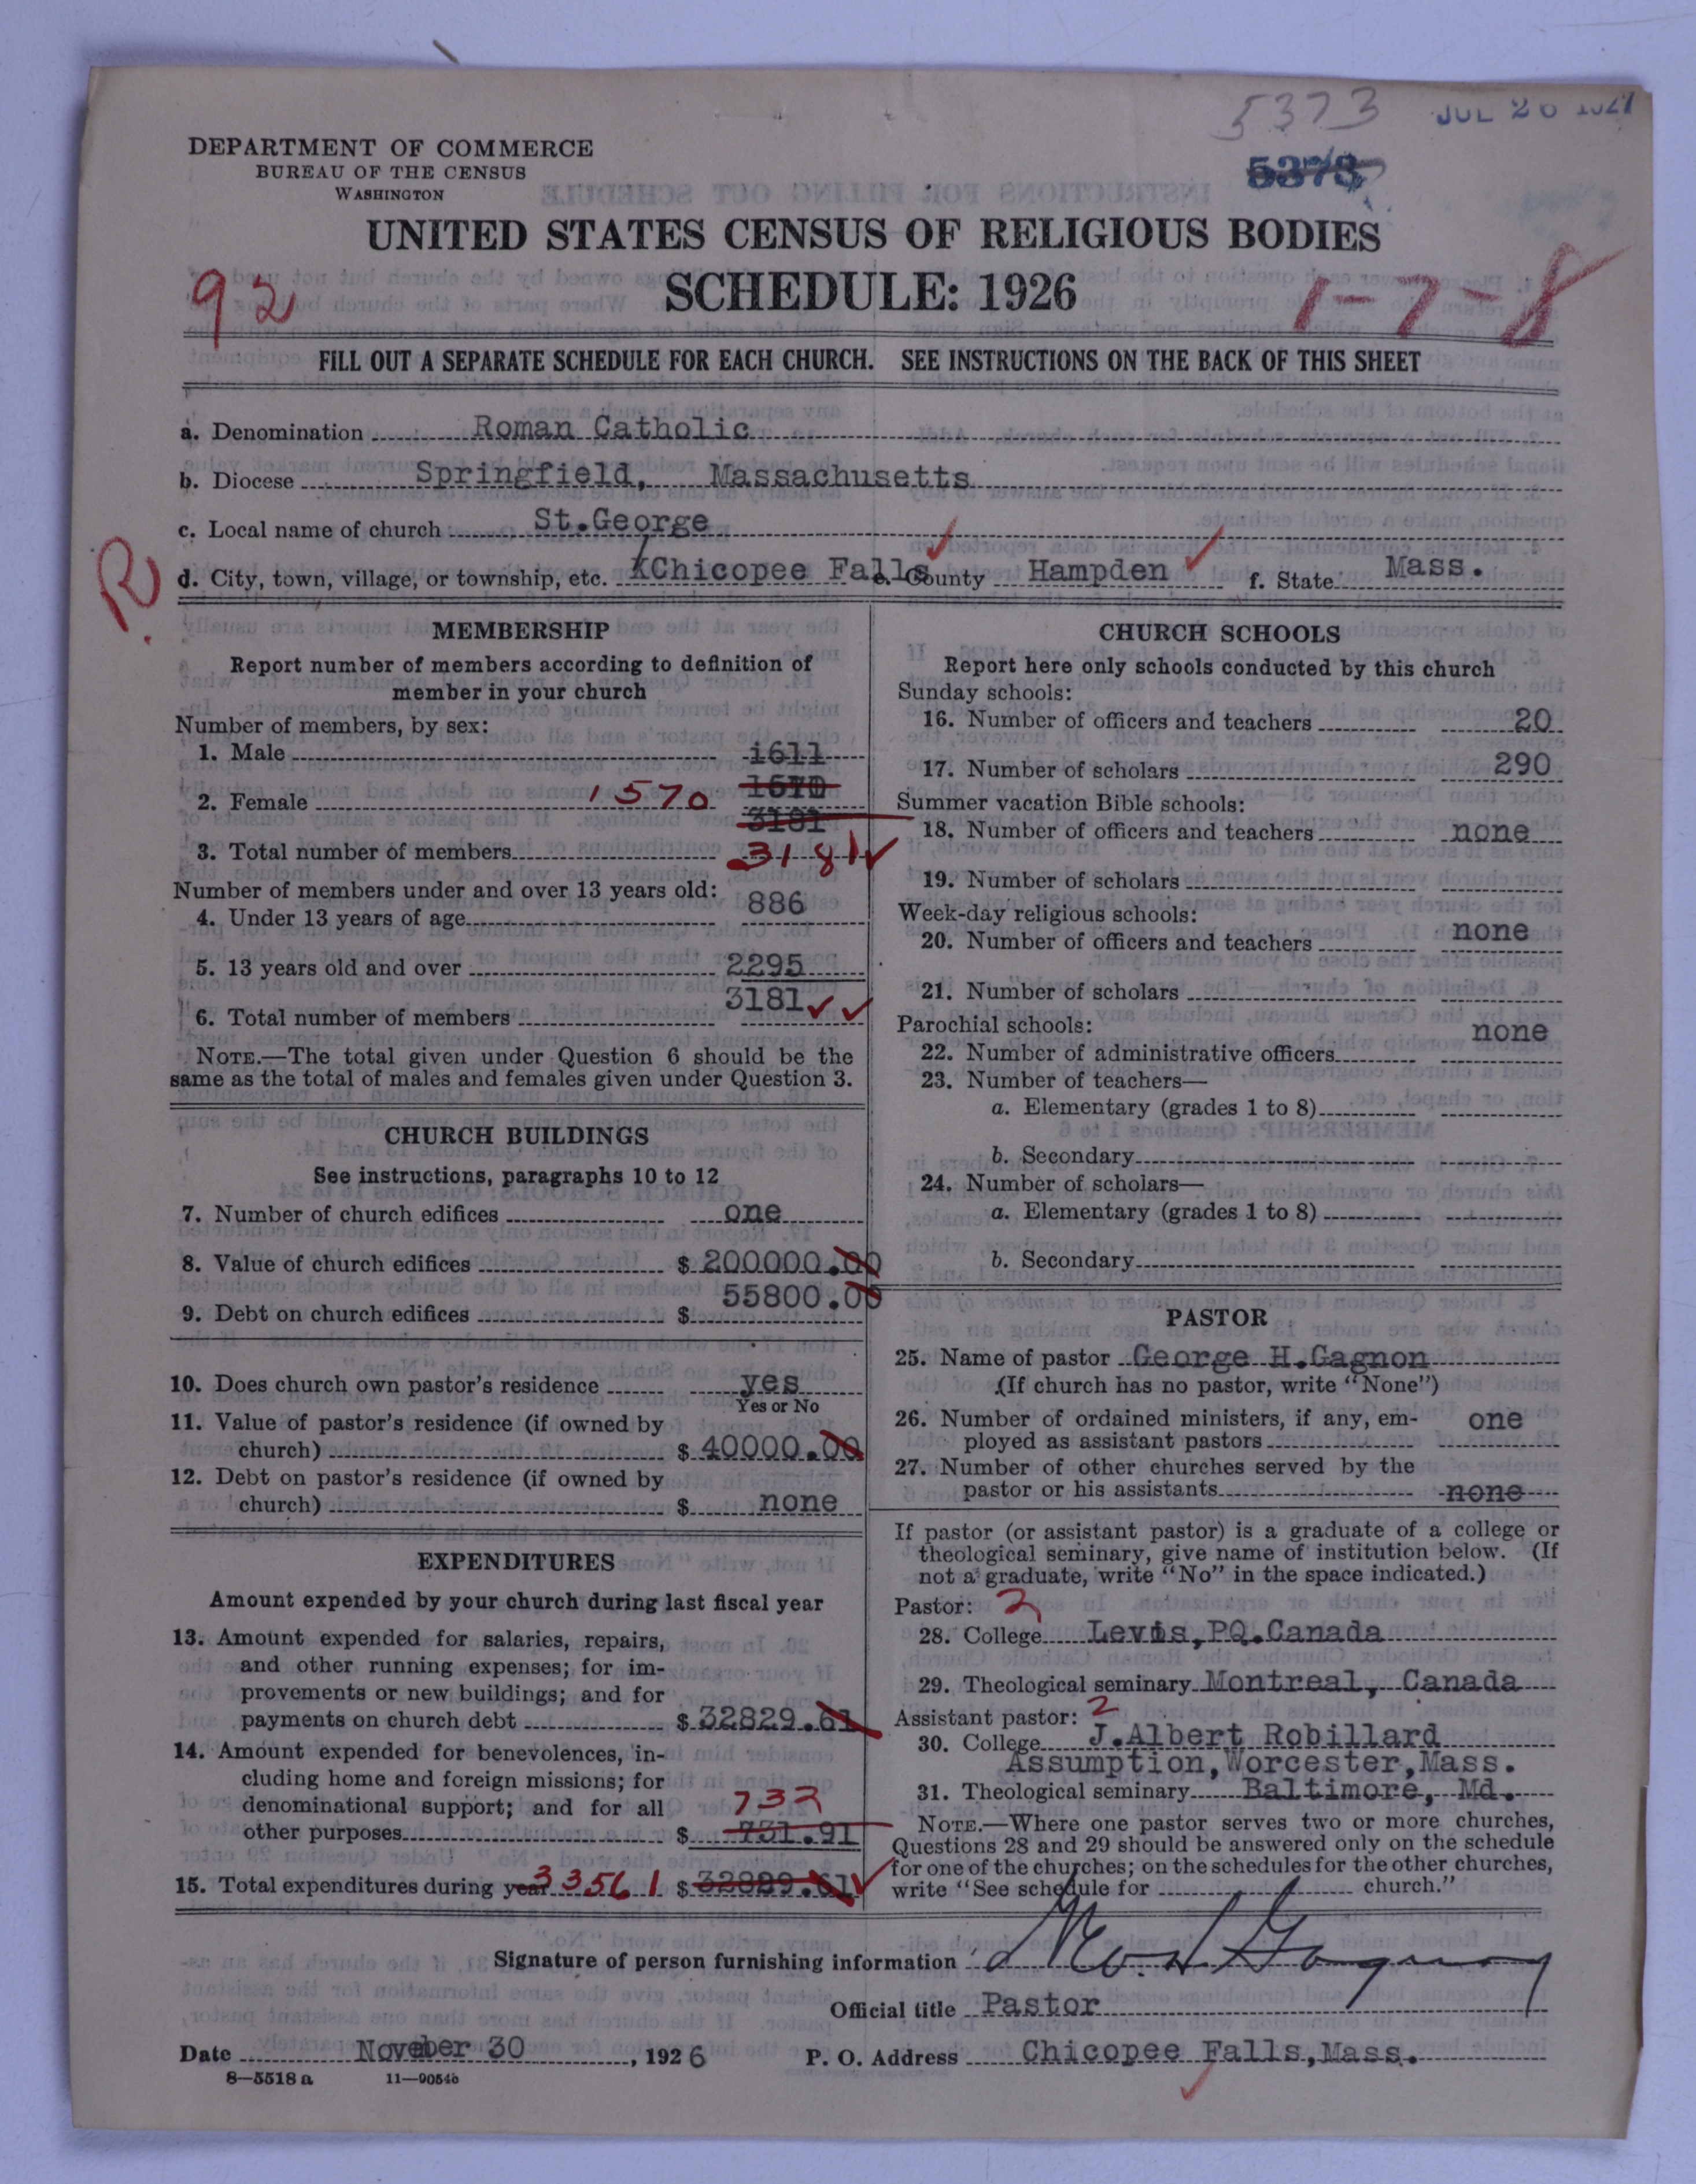 5373
JUL 26 1927
DEPARTMENT OF COMMERCE
BUREAU OF THE CENSUS
WASHINGTON
5373
UNITED STATES CENSUS OF RELIGIOUS BODIES
SCHEDULE: 1926
92
1-7-8
FILL OUT A SEPARATE SCHEDULE FOR EACH CHURCH. SEE INSTRUCTIONS ON THE BACK OF THIS SHEET
a. Denomination Roman Catholic
b. Diocese Springfield, Massachusetts
c. Local name of church St.George
R
d. City, town, village, or township, etc. Chicopee Falls e. County Hampden f. State Mass.
MEMBERSHIP
Report number of members according to definition of
member in your church
Number of members, by sex:
1. Male 1611
2. Female 1570
3181
3. Total number of members 3181
Number of members under and over 13 years old:
4. Under 13 years of age 886
5. 13 years old and over 2295
6. Total number of members 3181
NOTE.—The total given under Question 6 should be the
same as the total of males and females given under Question 3.
CHURCH BUILDINGS
See instructions, paragraphs 10 to 12
7. Number of church edifices one
8. Value of church edifices $ 200000.00
9. Debt on church edifices $ 55800.00
10. Does church own pastor's residence yes
Yes or No
11. Value of pastor's residence (if owned by
church) $ 40000.00
12. Debt on pastor's residence (if owned by
church) $ none
EXPENDITURES
Amount expended by your church during last fiscal year
13. Amount expended for salaries, repairs,
and other running expenses; for im-
provements or new buildings; and for
payments on church debt $ 32829.61
14. Amount expended for benevolences, in-
cluding home and foreign missions; for
denominational support; and for all 732
other purposes $ 731.91
15. Total expenditures during year 33561 $ 32829.61
CHURCH SCHOOLS
Report here only schools conducted by this church
Sunday schools:
16. Number of officers and teachers 20
17. Number of scholars 290
Summer vacation Bible schools:
18. Number of officers and teachers none
19. Number of scholars
Week-day religious schools:
20. Number of officers and teachers none
21. Number of scholars
Parochial schools:
22. Number of administrative officers none
23. Number of teachers—
a. Elementary (grades 1 to 8)
b. Secondary
24. Number of scholars—
a. Elementary (grades 1 to 8)
b. Secondary
PASTOR
25. Name of pastor George H.Gagnon
(If church has no pastor, write "None")
26. Number of ordained ministers, if any, em-
ployed as assistant pastors one
27. Number of other churches served by the
pastor or his assistants none
If pastor (or assistant pastor) is a graduate of a college or
theological seminary, give name of institution below. (If
not a graduate, write "No" in the space indicated.)
Pastor: 2
28. College Levis,PQ.Canada
29. Theological seminary Montreal, Canada
Assistant pastor: 2
30. College J.Albert Robillard
Assumption,Worcester,Mass.
31. Theological seminary Baltimore, Md.
NOTE.—Where one pastor serves two or more churches,
Questions 28 and 29 should be answered only on the schedule
for one of the churches; on the schedules for the other churches,
write "See schedule for church."
Signature of person furnishing information Geo. H Gagnon
Official title Pastor
Date November 30, 1926 P. O. Address Chicopee Falls,Mass.
8—5518a 11—9054b